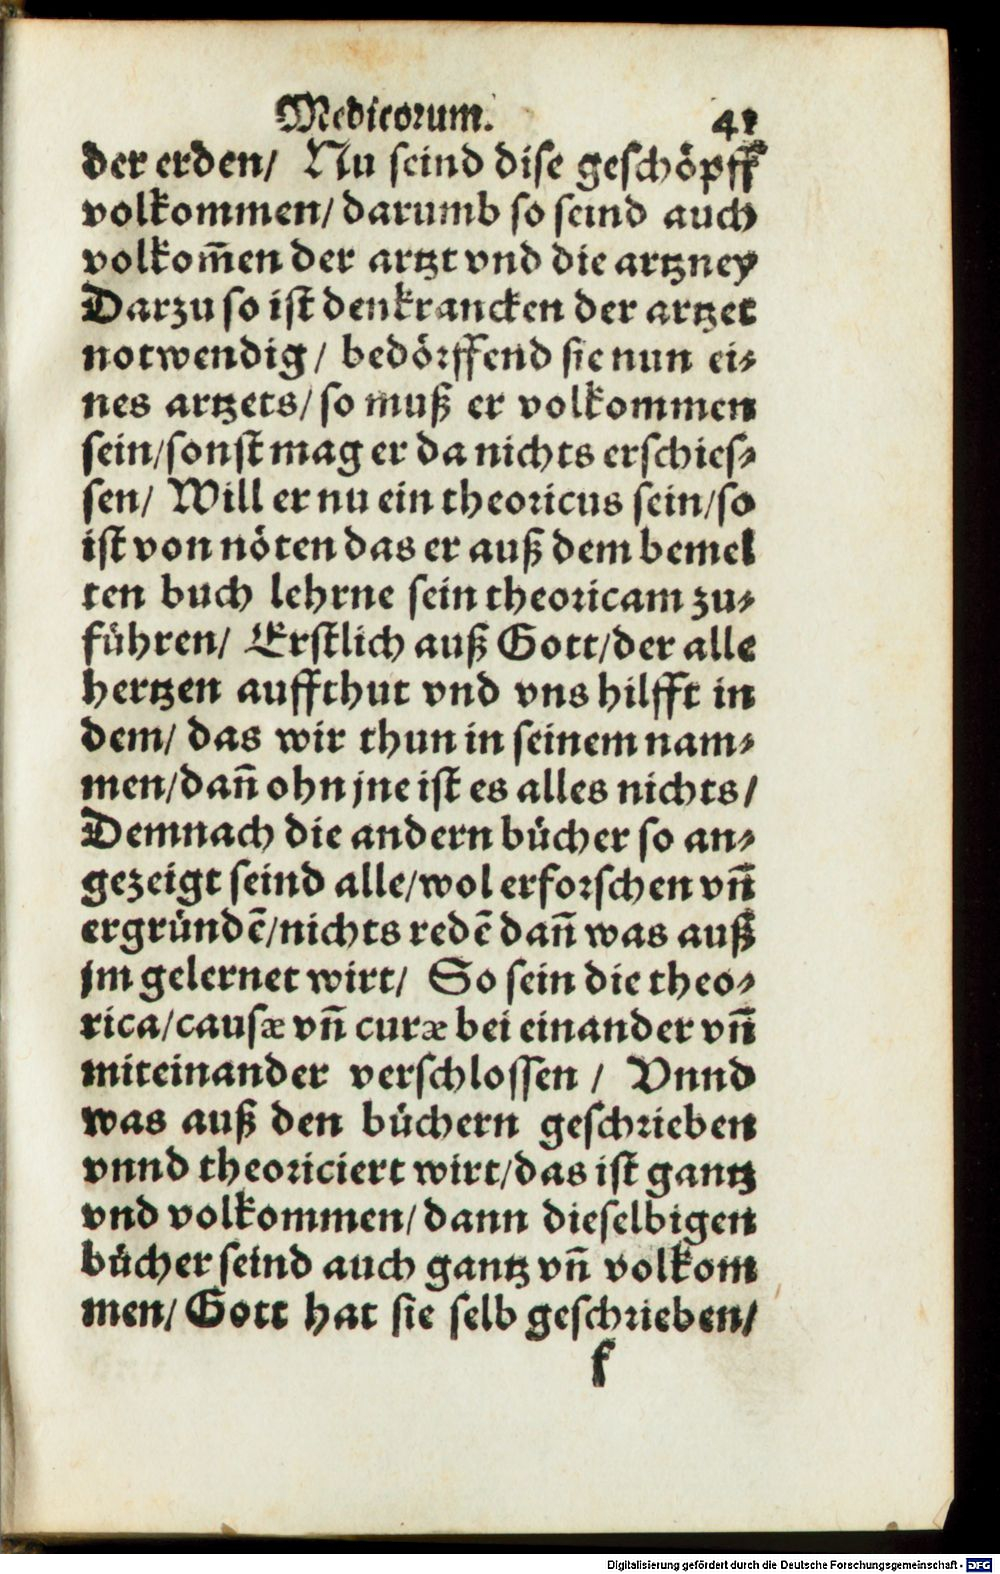 Medicorum. 41
der erden/ Nu seind dise geschöpff
volkommen/ darumb so seind auch
volkom̄en der artzt vnd die artzney
Darzu so ist den krancken der artzet
notwendig/ bedörffend sie nun ei⸗
nes artzets/ so muß er volkommen
sein/ sonst mag er da nichts erschies⸗
sen/ Will er nu ein theoricus sein/ so
ist von nöten das er auß dem bemel
ten buch lehrne sein theoricam zu⸗
führen/ Erstlich auß Gott/ der alle
hertzen auffthut vnd vns hilfft in
dem/ das wir thun in seinem nam⸗
men/ dan̄ ohn jne ist es alles nichts/
Demnach die andern bücher so an⸗
gezeigt seind alle/ wol erforschen vn̄
ergründē/ nichts redē dan̄ was auß
jm gelernet wirt/ So sein die theo⸗
rica/ causæ vn̄ curæ bei einander vn̄
miteinander verschlossen/ Vnnd
was auß den büchern geschrieben
vnnd theoriciert wirt/ das ist gantz
vnd volkommen/ dann dieselbigen
bücher seind auch gantz vn̄ volkom
men/ Gott hat sie selb geschrieben/
f
Digitalisierung gefördert durch die Deutsche Forschungsgemeinschaft - DFG